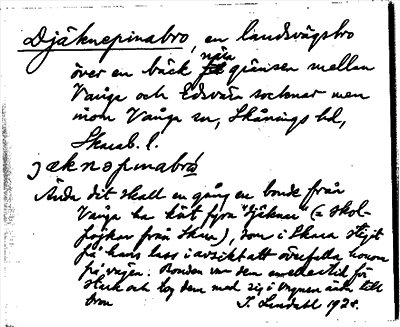 Djäknepinabro, en landsvägsbro
över en bäck nära gränsen mellan
Vånga och Edsvära socknar men
inom Vånga sn, Skånings hd,
Skarab. l.
jæknəpinabro
Ända dit skall en gång en bonde från
Vånga ha kört fyra "djäknar" (= skol-
pojkar från Skara), som i Skara stigit
på hans lass i avsikt att överfalla honom
på vägen. Bonden var den
och tog dem med sig i vagnen ända till
bron J. Lindahl 1928.